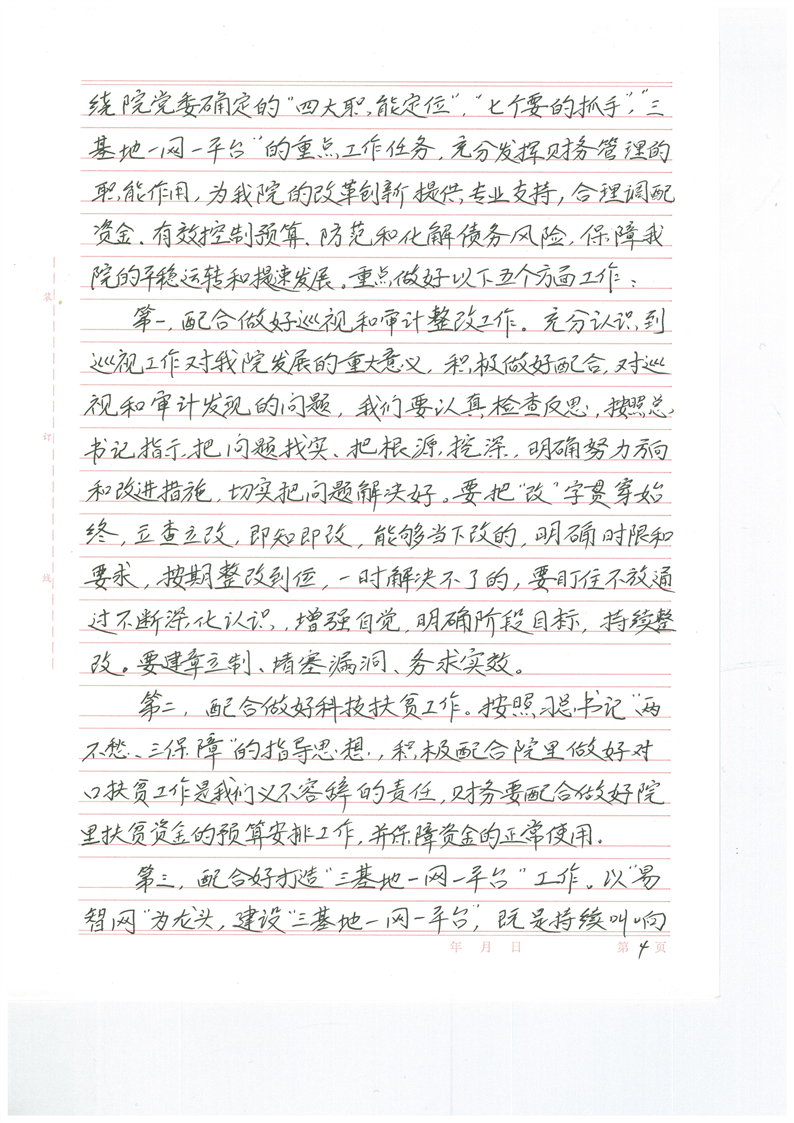 绕院党委确定的“四大职能定位”，“七个要的抓手”，“三
基地一网一平台”的重点工作任务，充分发挥财务管理的
职能作用，为我院的改革创新提供专业支持，合理调配
资金、有效控制预算、防范和化解债务风险，保障我
院的平稳运转和提速发展。重点做好以下五个方面工作：
第一，配合做好巡视和审计整改工作。充分认识到
巡视工作对我院发展的重大意义，积极做好配合，对巡
视和审计发现的问题，我们要认真检查反思，按照总
书记指示，把问题找实、把根源挖深，明确努力方向
和改进措施，切实把问题解决好。要把“改”字贯穿始
终，立查立改，即知即改，能够当下改的，明确时限和
要求，按期整改到位，一时解决不了的，要盯住不放通
过不断深化认识，增强自觉，明确阶段目标，持续整
改。要建章立制、堵塞漏洞、务求实效。
第二，配合做好科技扶贫工作。按照习总书记“两
不愁、三保障”的指导思想，积极配合院里做好对
口扶贫工作是我们义不容辞的责任，财务要配合做好院
里扶贫资金的预算安排工作，并保障资金的正常使用。
第三，配合好打造“三基地一网一平台”工作。以“易
智网”为龙头，建设“三基地一网一平台”，既是持续叫响
年 月 日 第4页
装
订
线